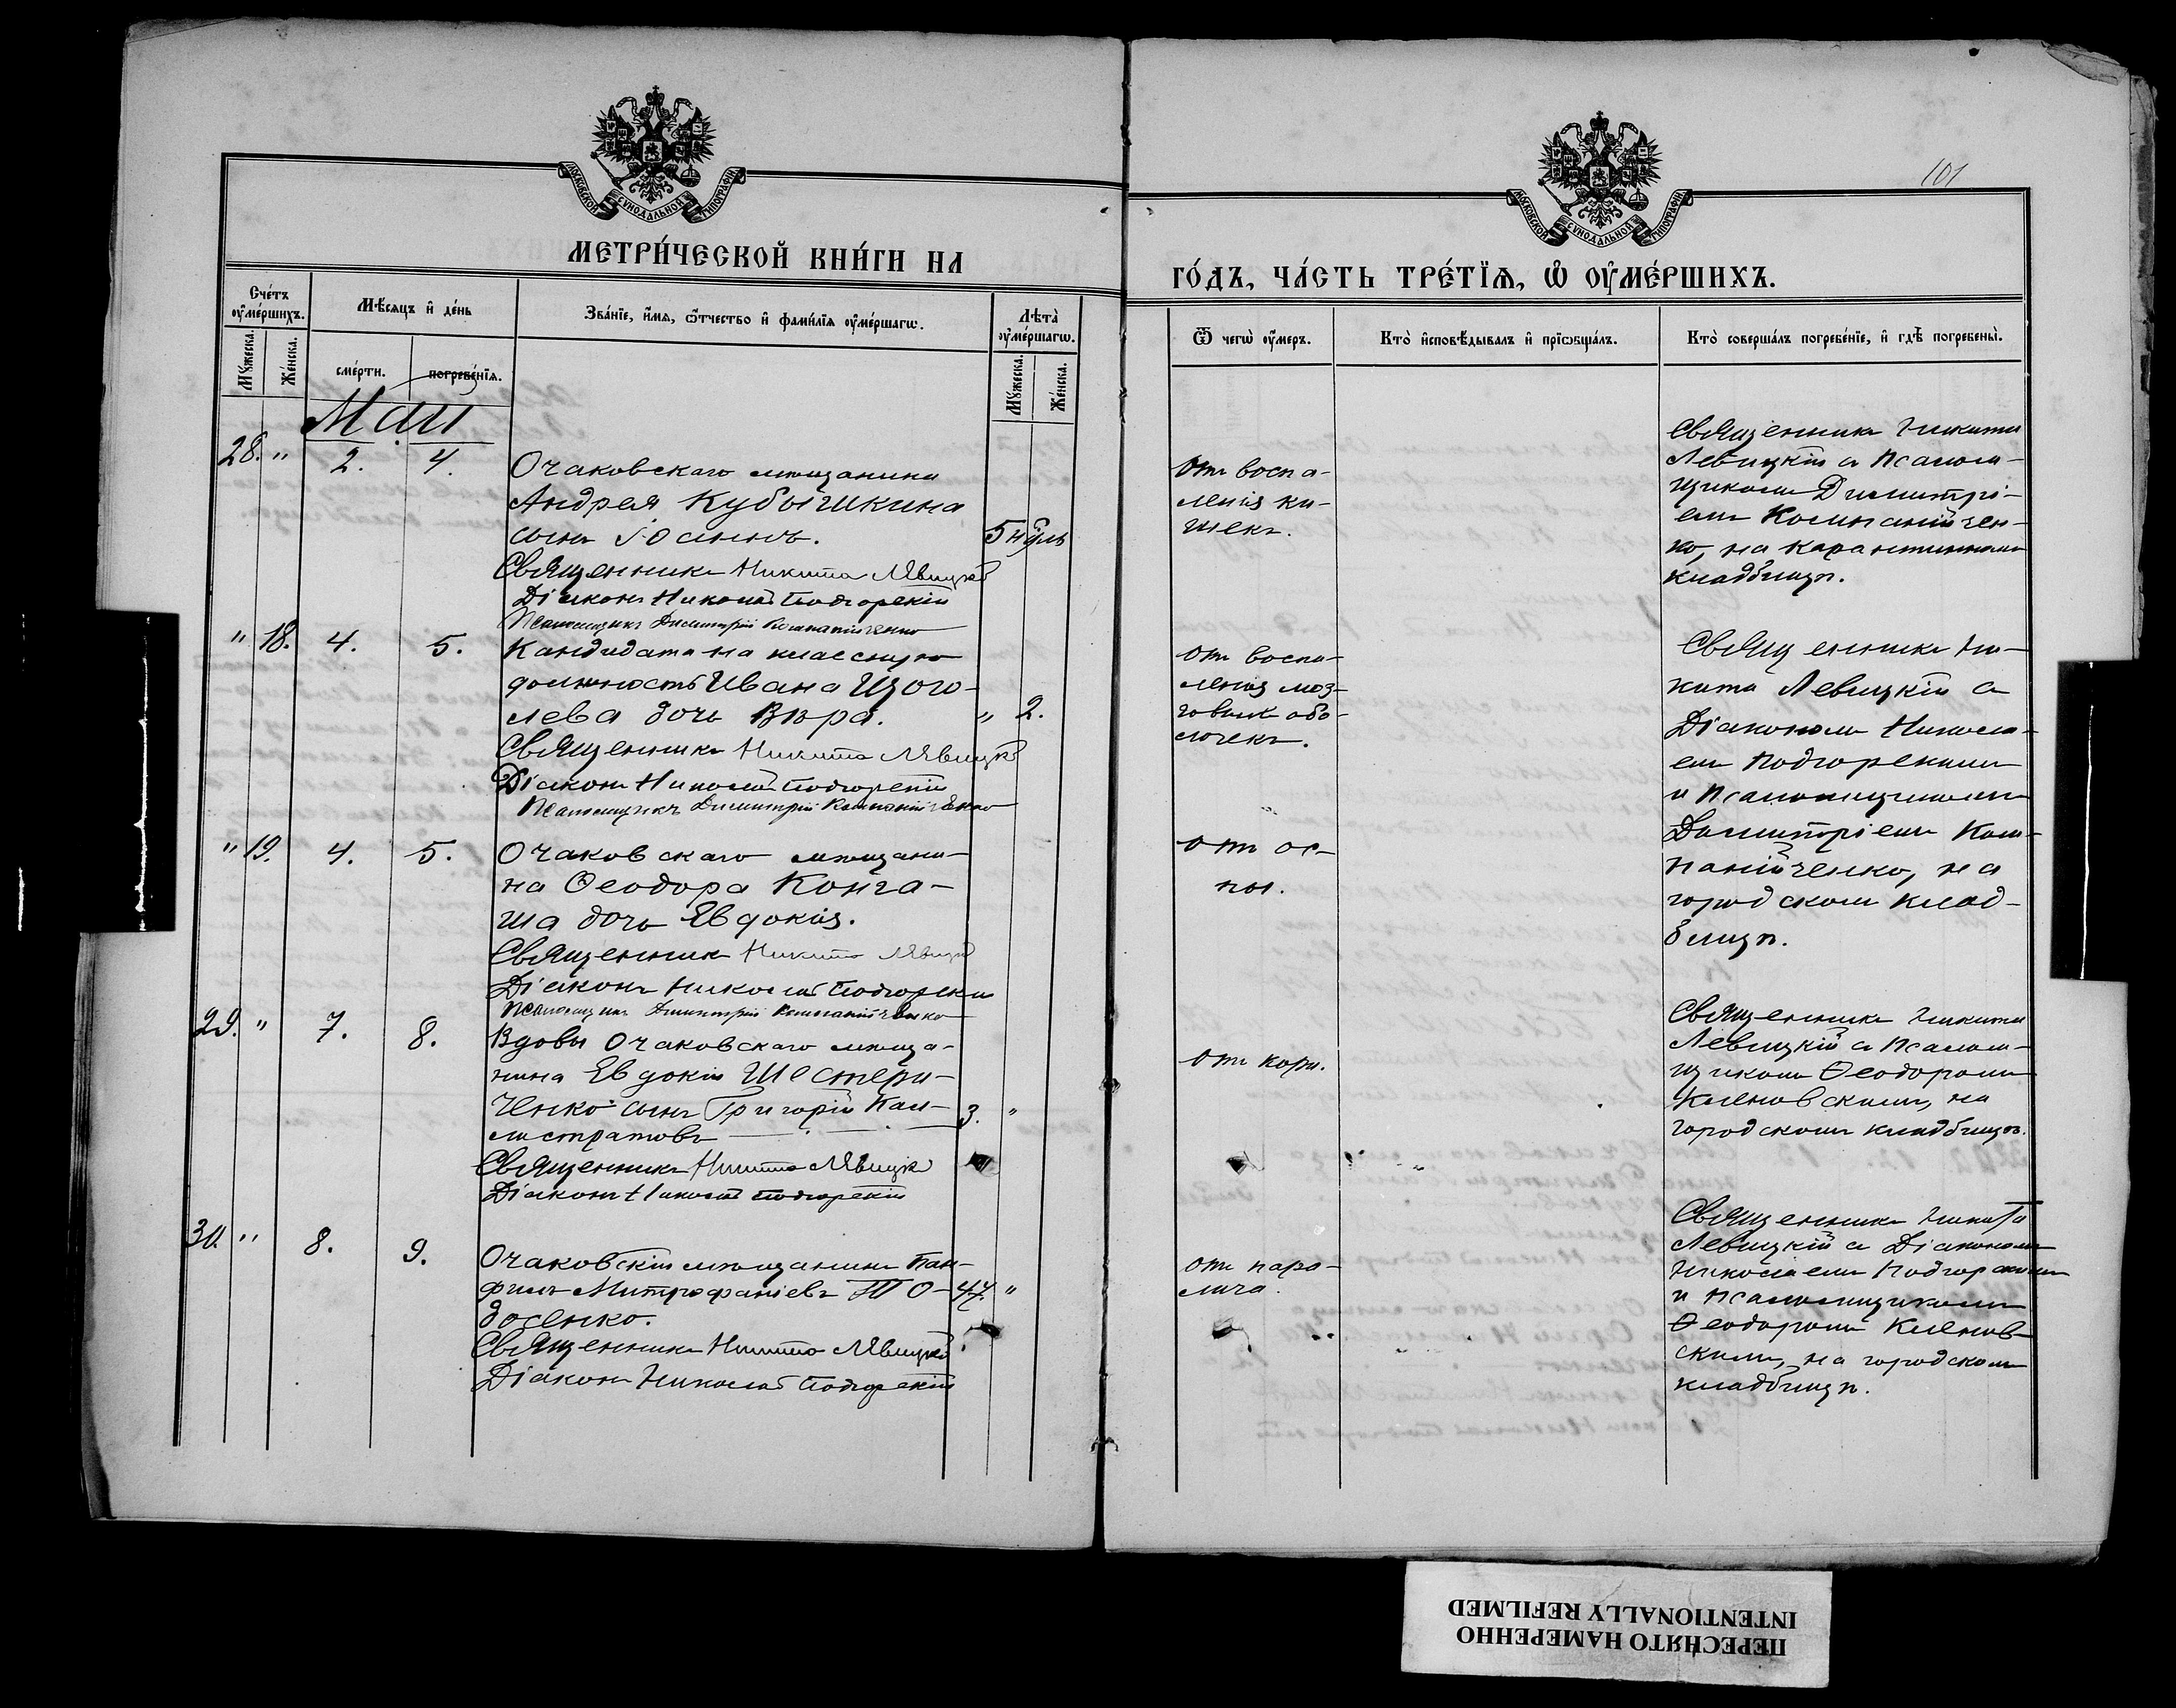 101
МОСКОВСКОЙ СУНОДАЛЬНОЙ ТИПОГРАФІИ
МОСКОВСКОЙ СУНОДАЛЬНОЙ ТИПОГРАФІИ
МЕТРИ́ЧЕСКОЙ КНИ́ГИ НА
ГО́ДЪ, ЧА́СТЬ ТРЕ́ТЇѦ, Ѡ҆ ОУ҆МЕ́РШИХЪ.
Сче́тъ оу҆ме́ршихъ.
Мѣ́сяцъ и҆ де́нь
Зва́нїе, и҆́мѧ, ѻ҆́тчество и҆ фами́лїѧ оу҆ме́ршагѡ.
Лѣта̀ оу҆ме́ршагѡ.
Мꙋ́жеска.
Же́нска.
сме́рти.
погребе́нїѧ.
Мꙋ́жеска.
Же́нска.
Ѿ чегѡ̀ оу҆́меръ.
Кто̀ и҆сповѣ́дывалъ и҆ прїѡбща́лъ.
Кто̀ соверша́лъ погребе́нїе, и҆ гдѣ̀ погребены̀.
Май
28. " 2. 4.
Очаковскаго мѣщанина
Андрея Кубышкина
сынъ Іоаннъ.
5
Священникъ Никита Левицкій
Діаконъ Николай Подгорскій
Псаломщикъ Димитрій Компанійченко
Отъ воспа-
ленія ки-
шекъ.
Священникъ Никита
Левицкій съ Псалом-
щикомъ Димитрі-
емъ Компанійчен-
ко, на карантинномъ
кладбищѣ.
" 18. 4. 5.
Кандидата на классную
должность Ивана Щого-
лева дочь Вѣра. " 2.
Священникъ Никита Левицкій
Діаконъ Николай Подгорскій
Псаломщикъ Димитрій Компанійченко
Отъ воспа-
ленія моз-
говыхъ обо-
лочекъ.
Священникъ Ни-
кита Левицкій съ
Діакономъ Никола-
емъ Подгорскимъ
и Псаломщикомъ
Димитріемъ Ком-
панійченко, на
городскомъ клад-
бищѣ.
" 19. 4. 5.
Очаковскаго мѣщани-
на Ѳеодора Конга-
ша дочь Евдокія.
Священникъ Никита Левицкій
Діаконъ Николай Подгорскій
Псаломщикъ Димитрій Компанійченко
Отъ ос-
пы.
29. " 7. 8.
Вдовы Очаковскаго мѣща-
нина Евдокіи Шестери-
ченко сынъ Григорій Кал-
листратовъ 3. "
Священникъ Никита Левицкій
Діаконъ Николай Подгорскій
Отъ кори.
Священникъ Никита
Левицкій съ Псалом-
щикомъ Ѳеодоромъ
Кленовскимъ, на
городскомъ кладбищѣ.
30. " 8. 9.
Очаковскій мѣщанинъ Пам-
филъ Митрофаніевъ То-
досенко. 47. "
Священникъ Никита Левицкій
Діаконъ Николай Подгорскій
Отъ пара-
лича.
Священникъ Никита
Левицкій съ Діакономъ
Николаемъ Подгорскимъ
и псаломщикомъ
Ѳеодоромъ Кленов-
скимъ, на городскомъ
кладбищѣ.
ПЕРЕСНЯТО НАМЕРЕННО
INTENTIONALLY REFILMED